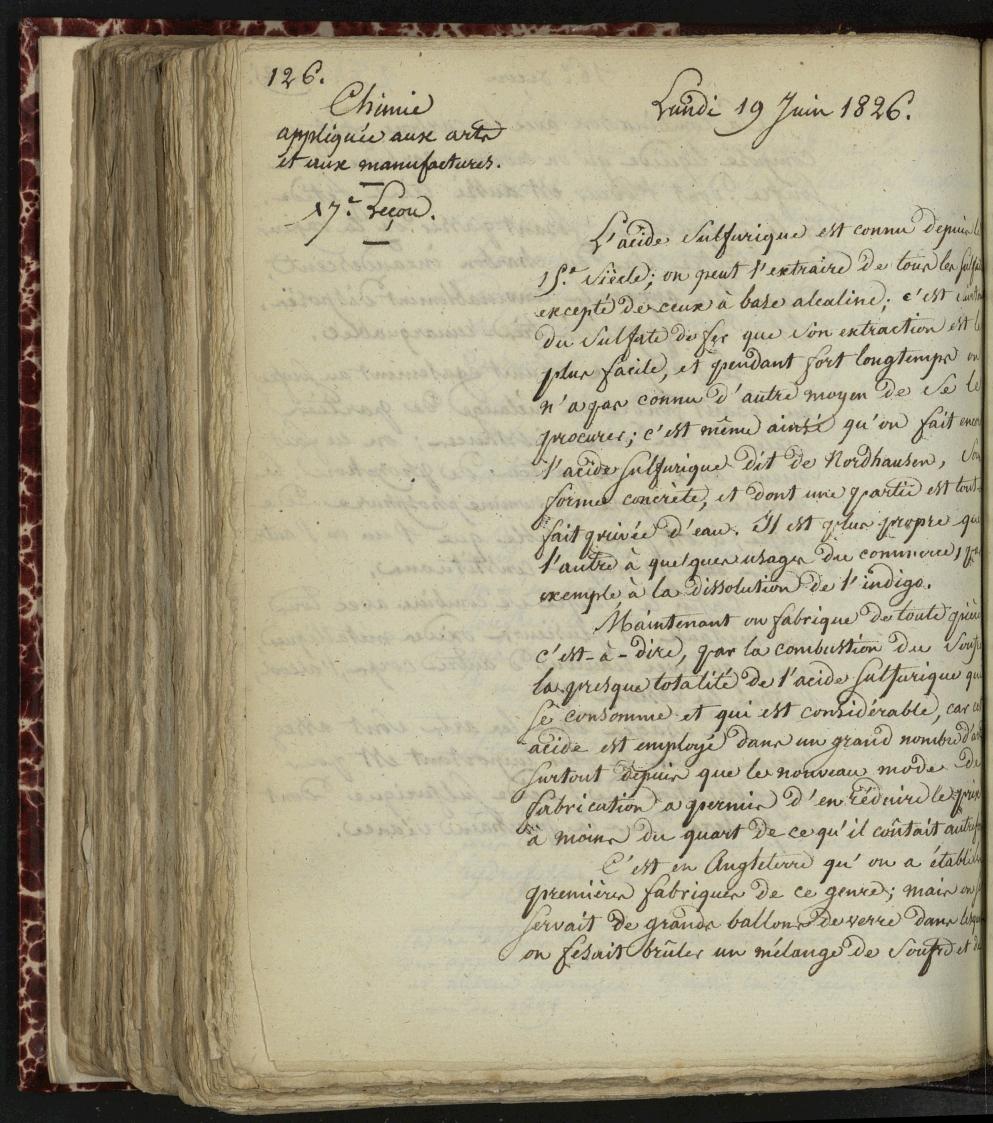 126.
Chimie
appliquée aux arts
et aux manufactures.
17.e Leçon.
Lundi 19 Juin 1826.
L'acide sulfurique est connu depuis le
15.e siècle; on peut l'extraire de tous les
excepté de ceux à base alcaline; c'est
du sulfate de fer que son extraction est le
plus facile, et pendant fort longtemps on
n'a pas connu d'autre moyen de se le
procurer; c'est même ainsi qu'on fait
l'acide sulfurique dit de Nordhausen,
forme concrète, et dont une partie est tout-
fait privée d'eau. Il est plus propre que
l'autre à quelques usages du commerce,
exemple à la dissolution de l'indigo.
Maintenant on fabrique de toute
c'est-à-dire, par la combustion du
la presque totalité de l'acide sulfurique
se consomme et qui est considérable, car
acide est employé dans un grand nombre
surtout depuis que le nouveau mode de
fabrication a permis d'en réduire le prix
à moins du quart de ce qu'il coûtait
C'est en Angleterre qu'on a
premières fabriques de ce genre; mais on
servait de grands ballons de verre dans
on fesait brûler un mélange de soufre et de